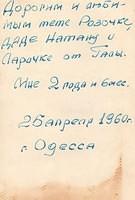 Дорогим и люби-
мым тете Розочке,
дяде Натану и
Ларочке от Гали.
Мне 2 года и 6 мес.
26 апреля 1960г.
г. Одесса